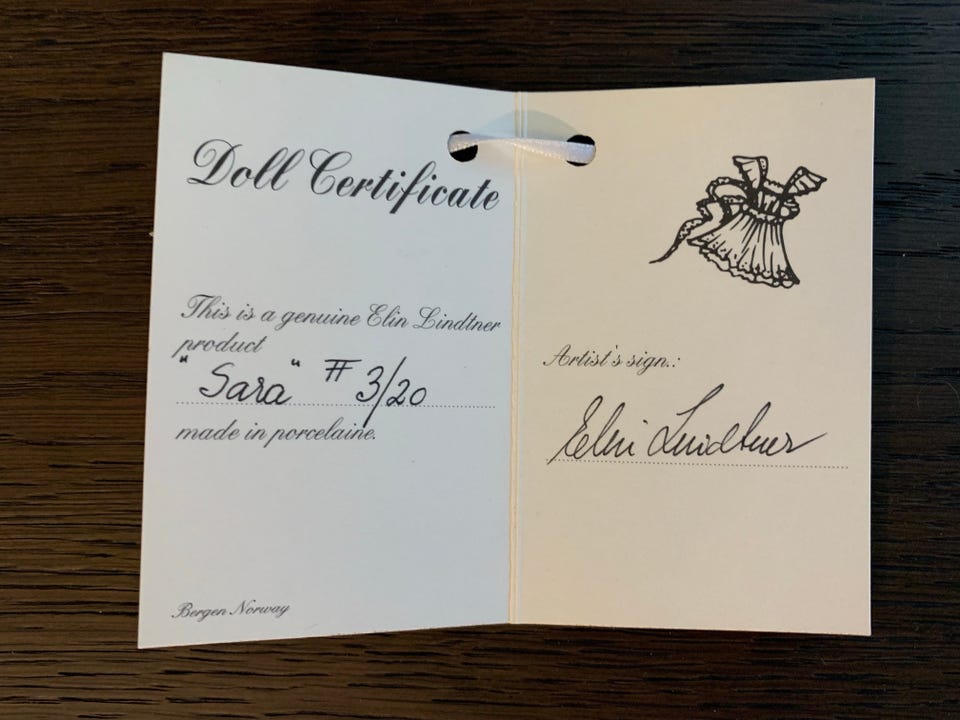 Doll Certificate
This is a genuine Elin Lindtner
product
"Sara" # 3/20
made in porcelaine.
Bergen Norway
Artist's sign.:
Elin Lindtner